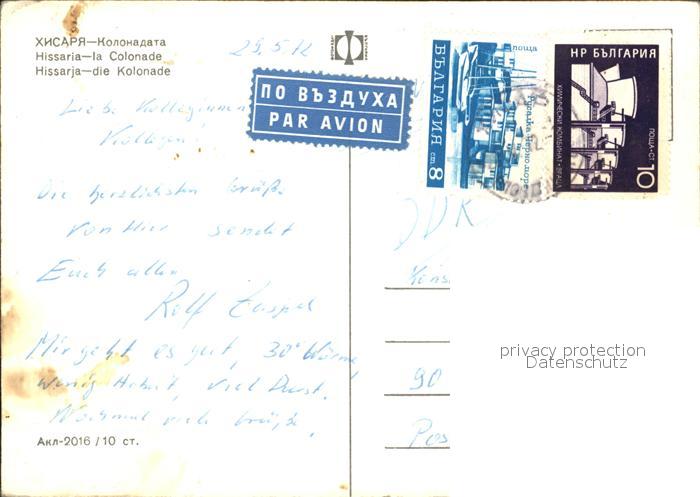 ХИСАРЯ—Колонадата
Hissaria—la Colonade
Hissarja—die Kolonade
29.5.72
ПО ВЪЗДУХА
PAR AVION
БЪЛГАРИЯ ст 8
поща
НР БЪЛГАРИЯ
ХИМИЧЕСКИ КОМБИНАТ-ВРАЦА
ПОЩА-СТ. 10
Liebe Kolleginnen
Kollegen!
Die herzlichsten Grüße
von hier sendet
Euch allen
Rolf
Mir geht es gut, 30° Wärme,
wenig Arbeit, viel Durst.
Nochmal viele Grüße.
90
Pos
privacy protection
Datenschutz
Акл-2016/10 ст.